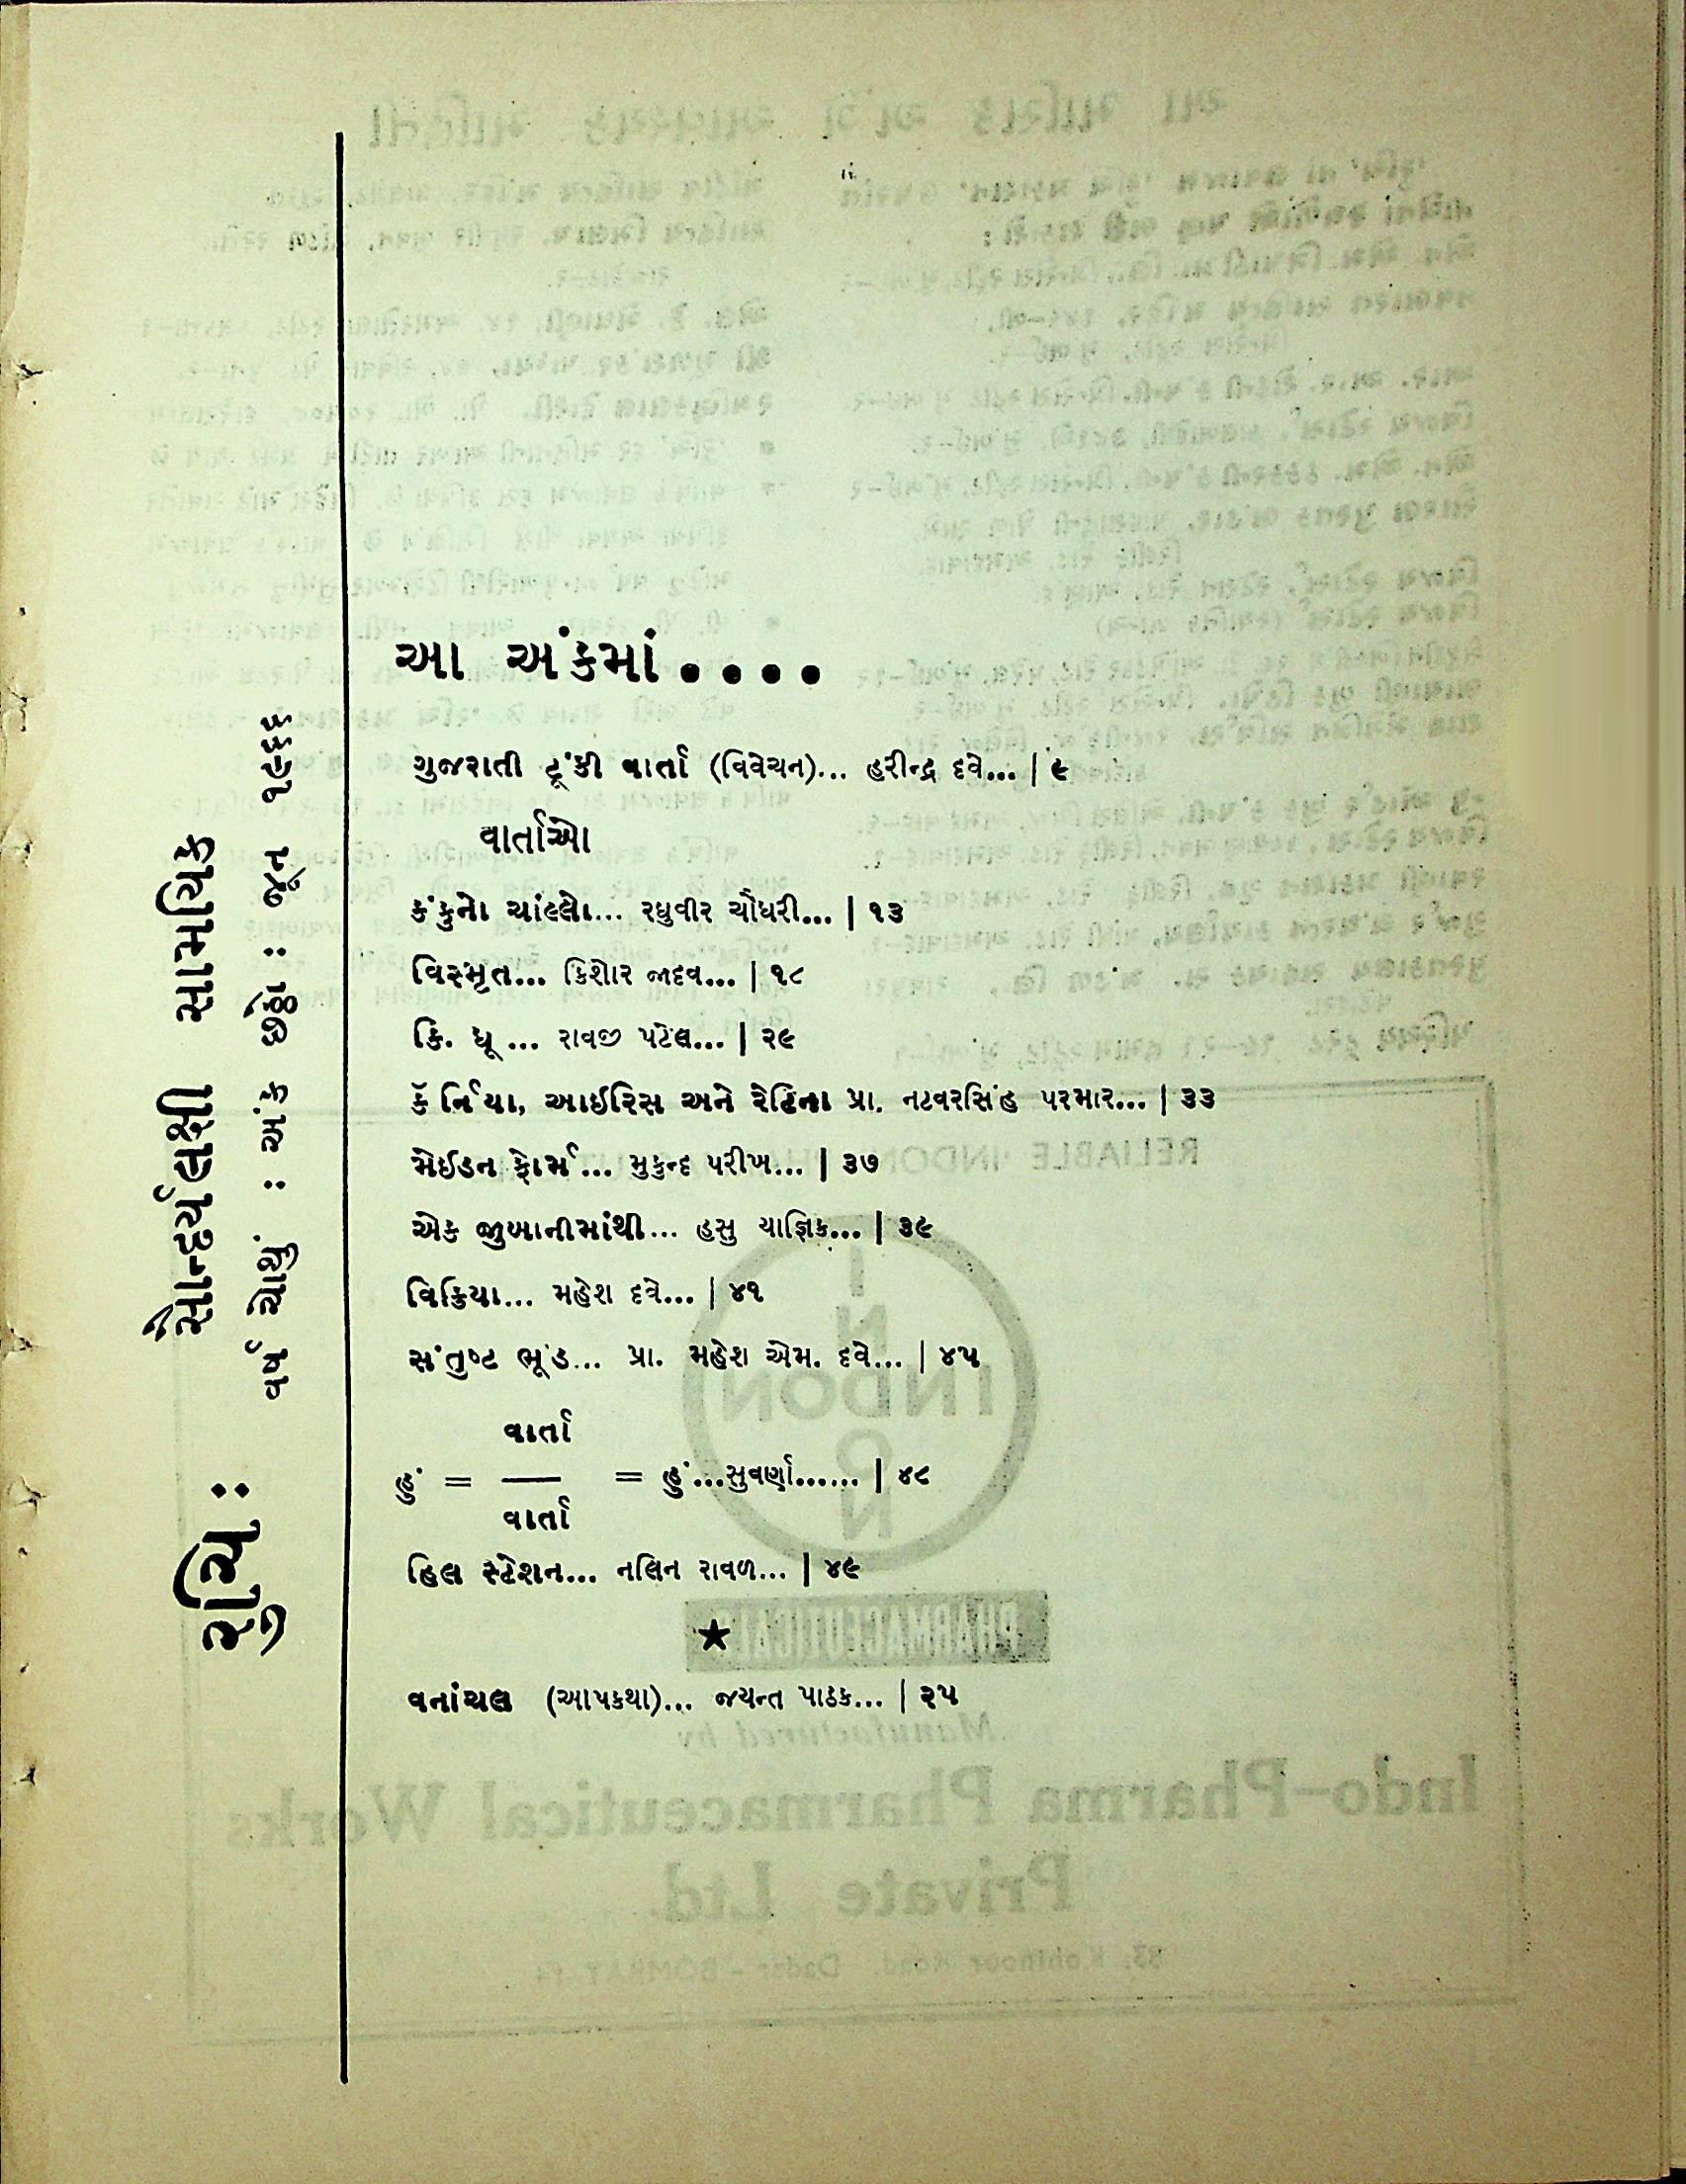 રુચિ :
સૌન્દર્યલક્ષી સામયિક
વર્ષ ચોથું : અંક છઠ્ઠો : જૂન ૧૯૬૬
આ અંકમાં....
ગુજરાતી ટૂંકી વાર્તા (વિવેચન)... હરીન્દ્ર દવે... | ૯
વાર્તાઓ
કંકુનો ચાંલ્લો... રઘુવીર ચૌધરી... | ૧૩
વિસ્મૃત... કિશોર જાદવ... | ૧૮
કિ. ધૂ ... રાવજી પટેલ... | ૨૯
કૅર્નિયા, આઇરિસ અને રેટિના પ્રા. નટવરસિંહ પરમાર... | ૩૩
મેઈડન ફોર્મ... મુકુન્દ પરીખ... | ૩૭
એક જુબાનીમાંથી... હસુ યાજ્ઞિક... | ૩૯
વિક્રિયા... મહેશ દવે... | ૪૧
સંતુષ્ટ ભૂંડ... પ્રા. મહેશ એમ. દવે... | ૪૫
વાર્તા
હું = —— = હું...સુવર્ણા...... | ૪૮
વાર્તા
હિલ સ્ટેશન... નલિન રાવળ... | ૪૯
★
વનાંચલ (આપકથા)... જયન્ત પાઠક... | ૨૫